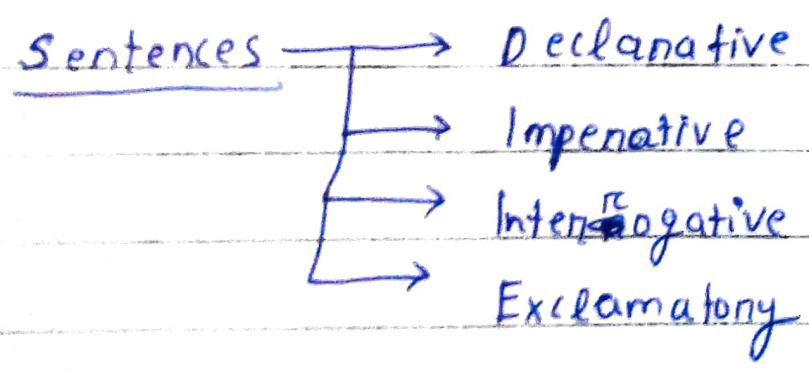 Sentences → Declarative
→ Imperative
→ Interrogative
→ Exclamatory